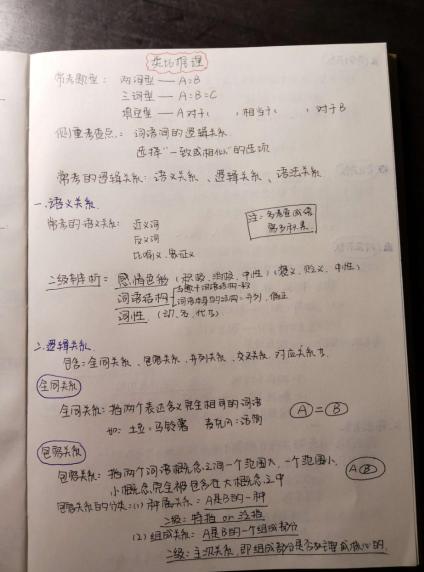 类比推理
常考题型： 两词型 — A:B
三词型 — A:B:C
填空型 — A对于（ ，相当于（ ，对于B
侧重考查点： 词语间的逻辑关系
选择"一致或相似"的选项
常考的逻辑关系：语义关系、逻辑关系、语法关系
一、语义关系
常考的语义关系： 近义词
反义词
比喻义、象征义
注：多考查成语
二级辨析： 感情色彩（积极、消极、中性）（褒义、贬义、中性）
词语结构
词性（动、名、代）
二、逻辑关系
包含：全同关系、包容关系、并列关系、交叉关系、对应关系
全同关系
全同关系：指两个表达含义完全相同的词语
如：土豆：马铃薯
A = B
包容关系
包容关系：指两个词语概念之间一个范围大，一个范围小，
小概念完全被包含在大概念之中
A B
包容关系的分类：(1) 种属关系：A是B的一种
二级：特指 or 泛指
(2) 组成关系：A是B的一个组成部分
二级：主次关系 即组成部分是否